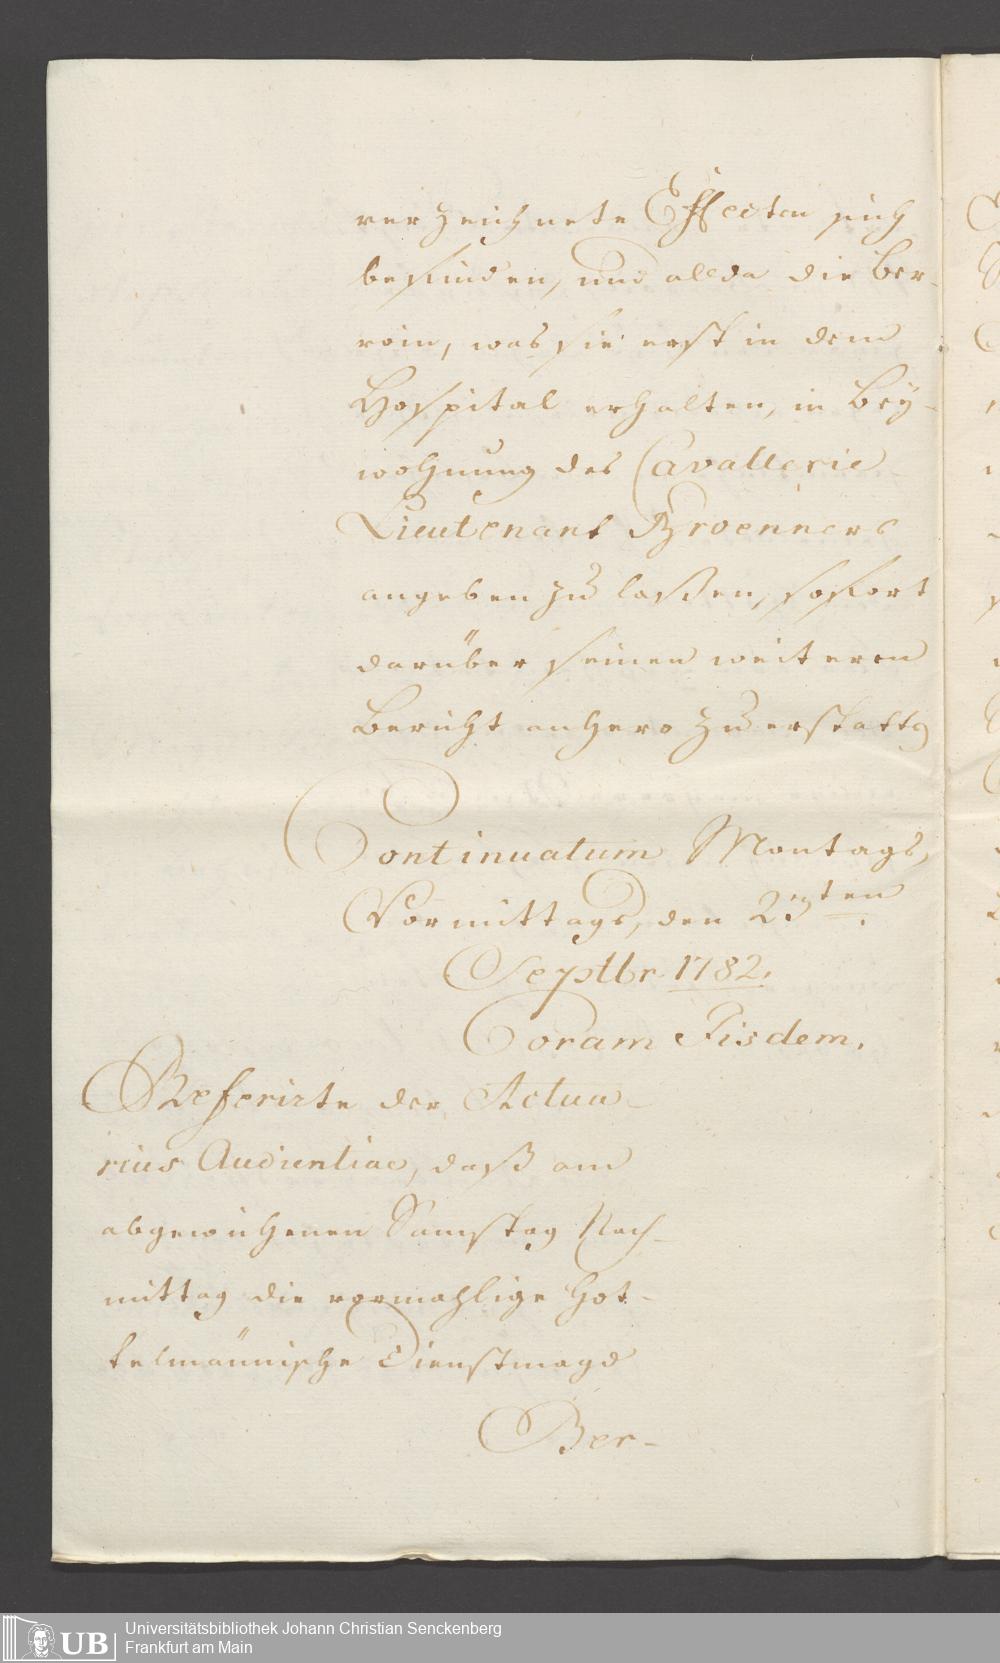 verzeichnete Effecten sich
befinden, und allda die Ber-
roin, was sie erst in dem
Hospital erhalten, in Bey-
wohnung des Cavallerie
Lieutenant Broenners
angeben zu laßen, sofort
darüber seinen weiteren
Bericht anhero zu erstattg
Continuatum Montags,
Vormittags, den 23ten
Septbr. 1782.
Coram Iisdem.
Referirte der Actua-
rius Audientiae, daß am
abgewichenen Samstag Nach-
mittag die vormahlige Hot-
telmännische Dienstmagd
Ber-
Universitätsbibliothek Johann Christian Senckenberg
Frankfurt am Main
UB